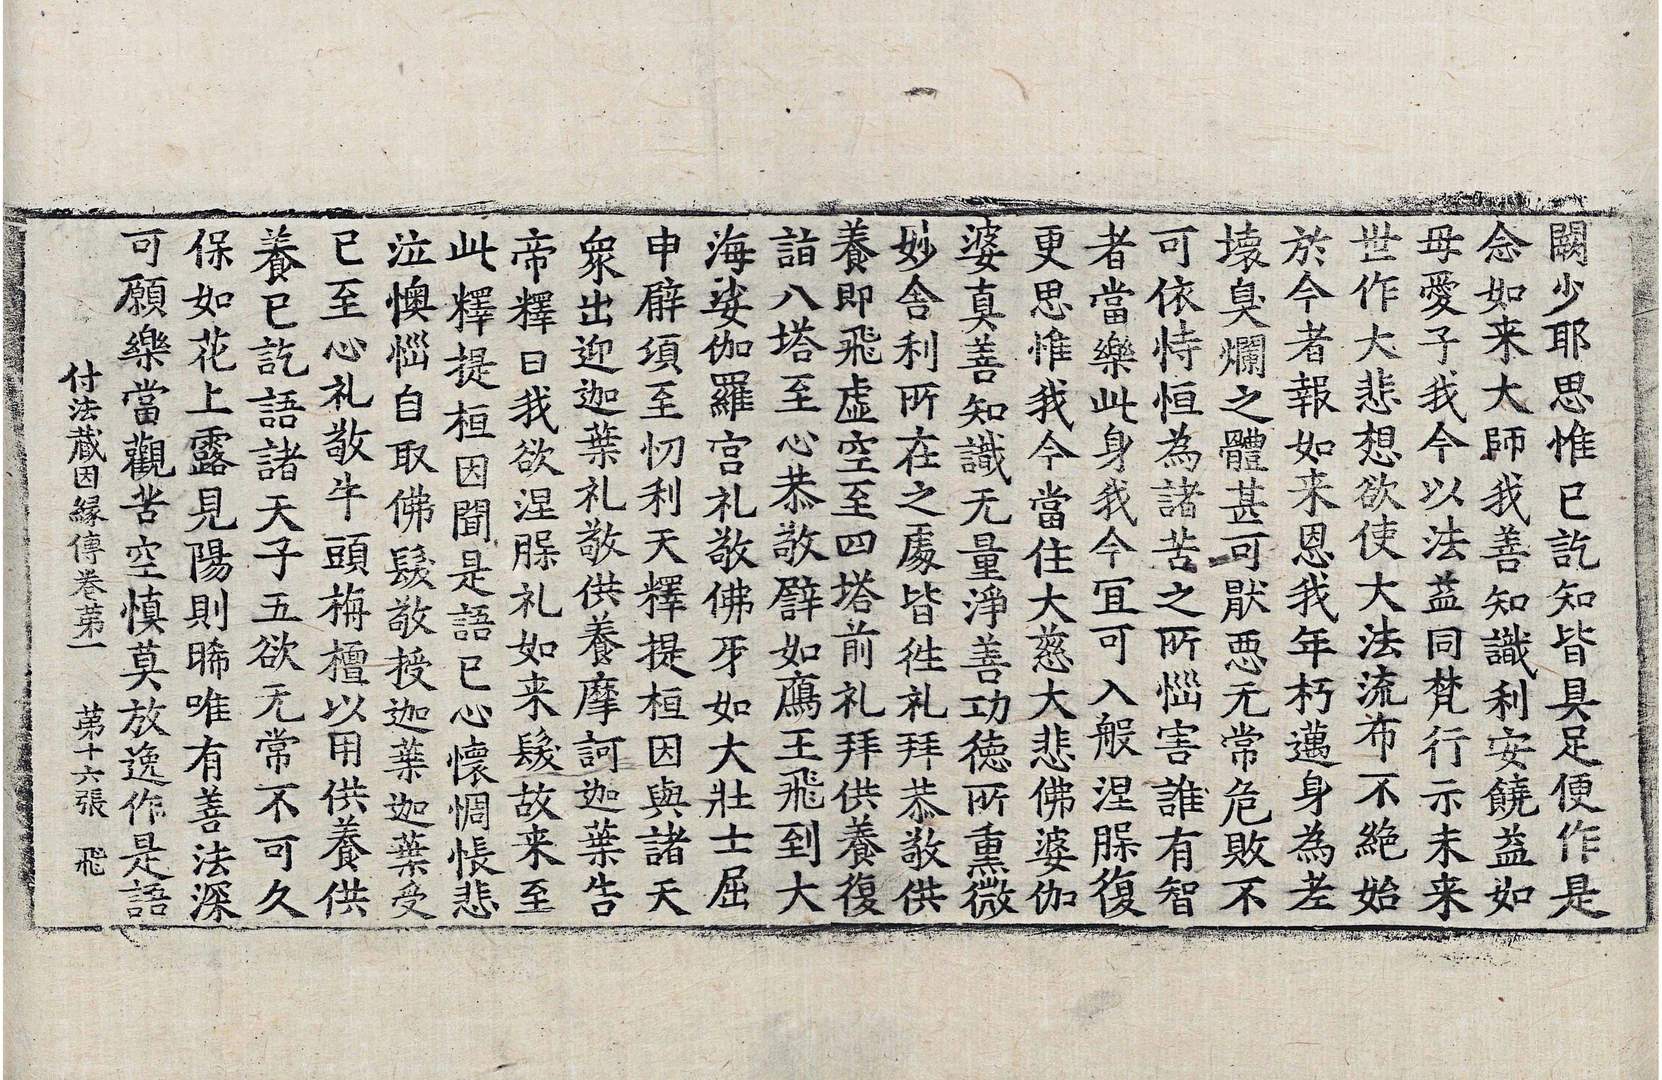 闕少耶思惟已訖知皆具足便作是
念如来大師我善知識利安饒益如
母愛子我今以法益同梵行示未来
世作大悲想欲使大法流布不絶始
於今者報如来恩我年朽邁身為老
壊臭爛之體甚可猒惡无常危敗不
可依恃恒為諸苦之所惱害誰有智
者當樂此身我今冝可入般涅槃復
更思惟我今當住大慈大悲佛婆伽
婆真善知識无量淨善功徳所熏微
妙舎利所在之處皆徃礼拜恭敬供
養即飛虚空至四塔前礼拜供養復
詣八塔至心恭敬譬如鴈王飛到大
海娑伽羅宫礼敬佛牙如大壯士屈
申臂須至忉利天釋提桓因與諸天
衆出迎迦葉礼敬供養摩訶迦葉告
帝釋曰我欲涅槃礼如来髮故来至
此釋提桓因聞是語已心懷惆悵悲
泣懊惱自取佛髮敬授迦葉迦葉受
已至心礼敬牛頭栴檀以用供養供
養已訖語諸天子五欲无常不可久
保如花上露見陽則晞唯有善法深
可願樂當觀苦空慎莫放逸作是語
付法蔵因縁傳卷苐一　苐十六張　飛